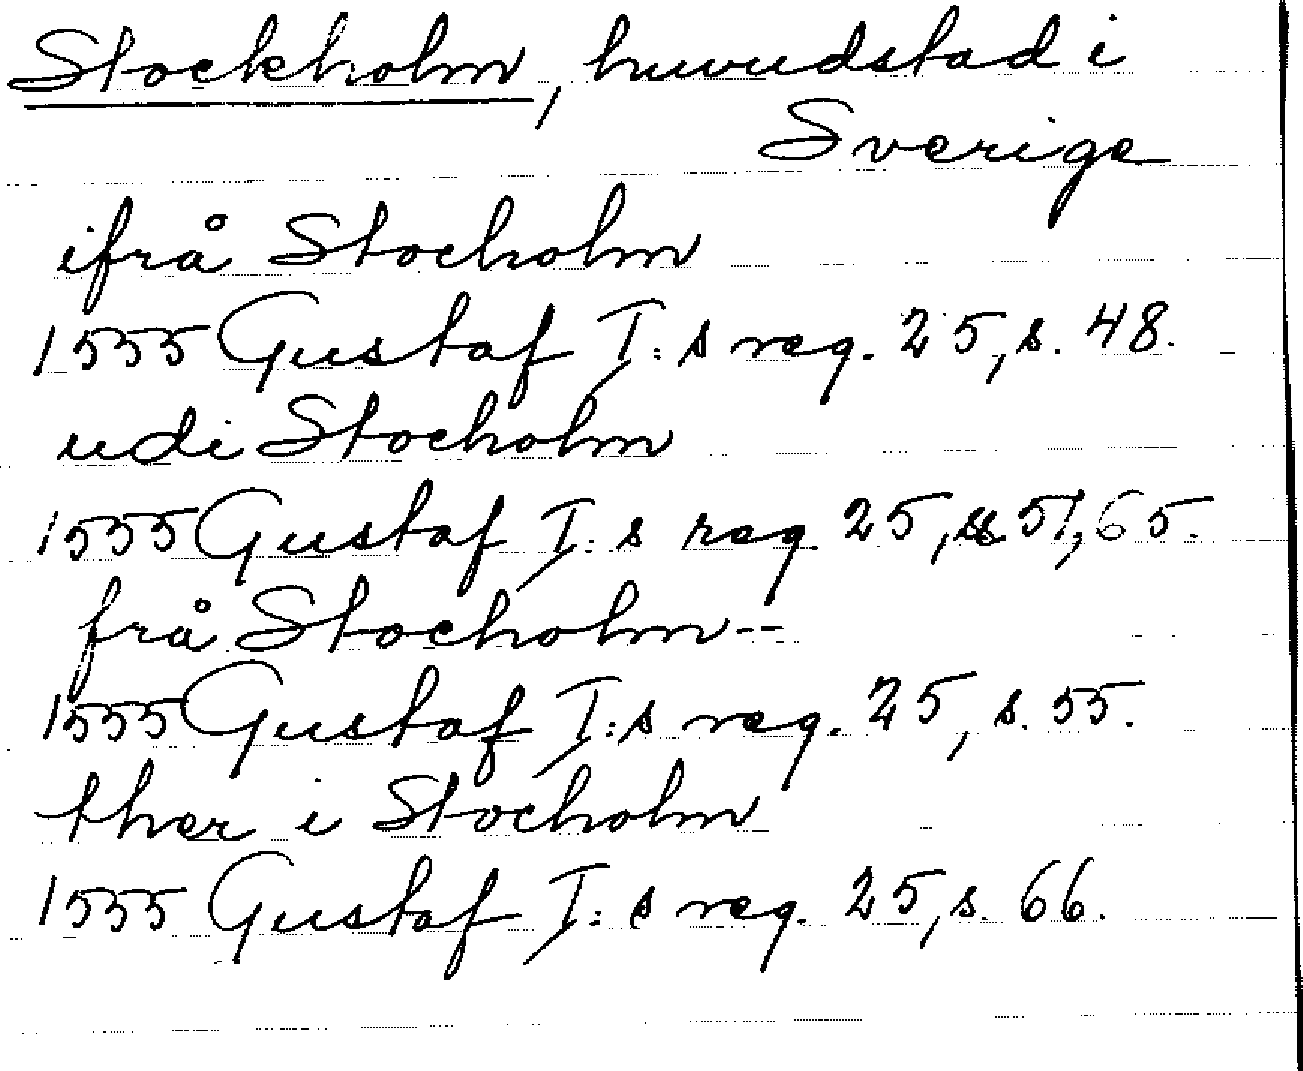 Stockholm, huvudstad i
Sverige
ifrå Stocholm
1555 Gustaf I:s reg. 25, s. 48.
udi Stocholm
1555 Gustaf I:s reg. 25, ss. 51, 65.
frå Stocholm--
1555 Gustaf I:s reg. 25, s. 55.
ther i Stocholm
1555 Gustaf I:s reg. 25, s. 66.